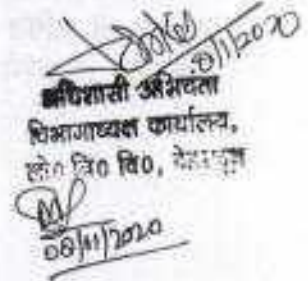 8/11/2020
अधिशासी अभियन्ता
विभागाध्यक्ष कार्यालय,
लो० नि० वि०, देहरादून
08/11/2020